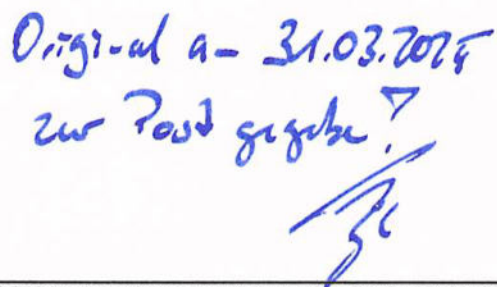 Original am 31.03.2025
zur Post gegeben!